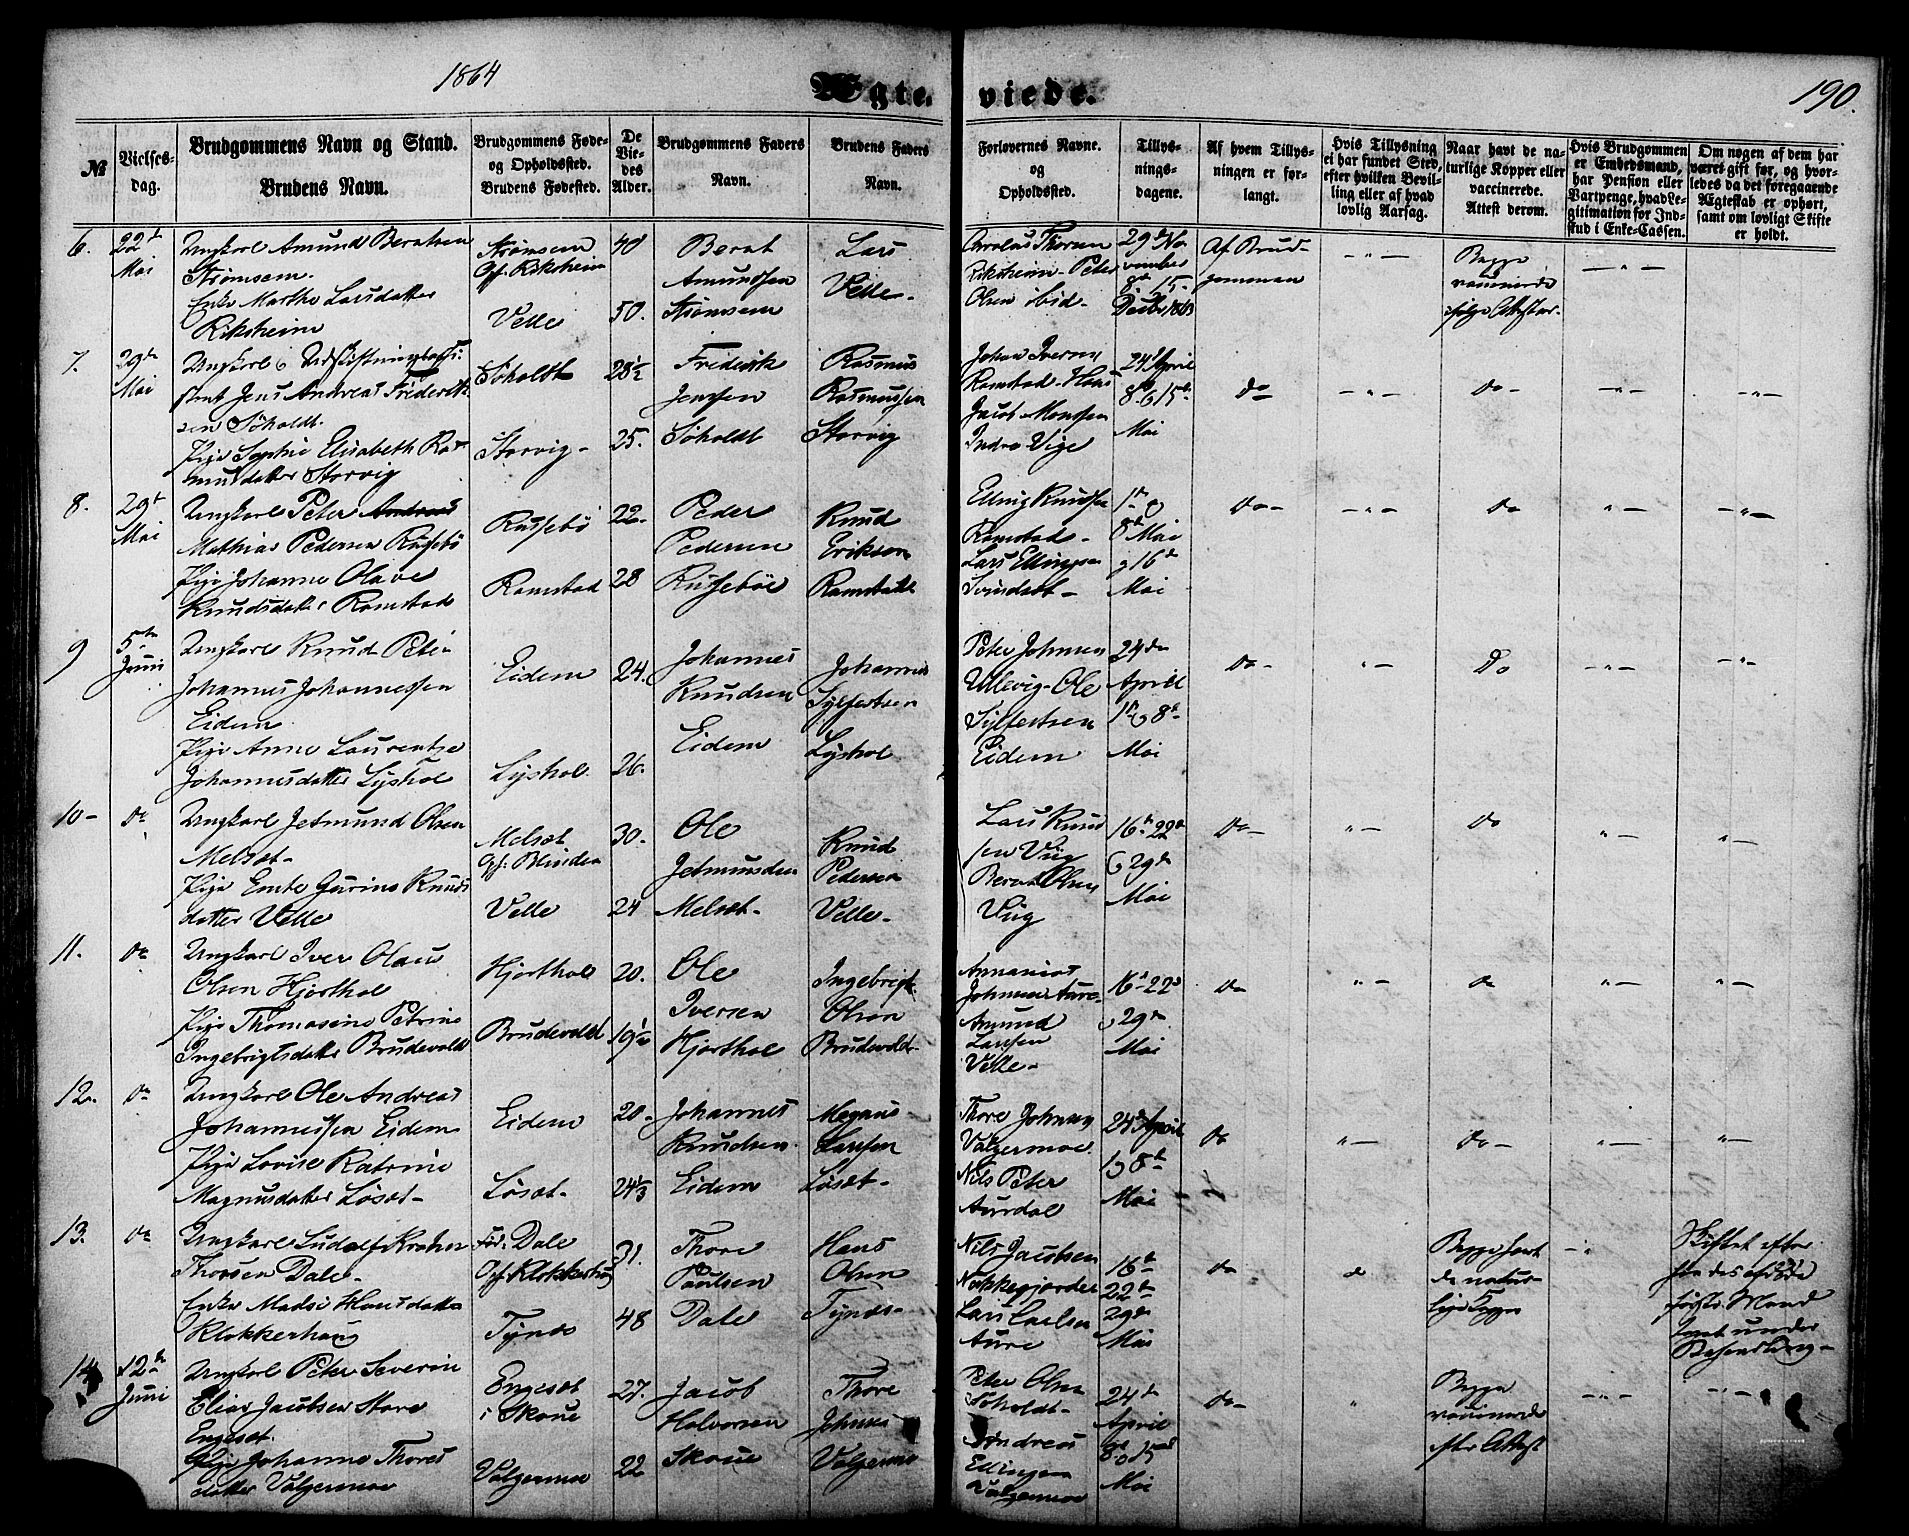 1864
190.
Ægte-
viede.
№
Vielses-
dag.
Brudgommens Navn og Stand.
Brudens Navn.
Brudgommens Føde-
og Opholdssted.
Brudens Fødested.
De
Vie-
des
Alder.
Brudgommens Faders
Navn.
Brudens Faders
Navn.
Forlovernes Navne.
og
Opholdssted.
Tillys-
nings-
dagene.
Af hvem Tillys-
ningen er for-
langt.
Hvis Tillysning
ei har fundet Sted,
efter hvilken Bevil-
ling eller af hvad
lovlig Aarsag.
Naar havt de na-
turlige Kopper eller
vaccinerede.
Attest derom.
Hvis Brudgommen
er Embedsmand,
har Pension eller
Vartpenge, hvad Le-
gitimation for Ind-
skud i Enke-Cassen.
Om nogen af dem har
været gift før, og hvor-
ledes da det foregaaende
Ægteskab er ophørt,
samt om lovligt Skifte
er holdt.
6.
22de
Mai
Ungkarl Amund Beratsen
Strømsem.
Enke Marthe Larsdatter
Riksheim
Strømsem
Opf. Riksheim
Velle
40
50.
Berat
Amundsen
Strømsem
Lars
Velle-
Thorsen
Riksheim- Peter
Olsen ibid-
29de No
vember
8de 15-
Decbr 1863
Af Brud-
gommen
Begge
vaccinerede
ifølge Attester-
7.
29de
Mai
Ungkarl
Jens Andreas Frederik-
sen Søholdt.
Pige Sophie Elisabeth Ras-
musdatter Storvig
Søholdt
Storvig-
28½
25.
Frederik
Jenssen
Søholdt
Rasmus
Rasmussen
Storvig
Johan Iversen
Ramstad- Hans
Jacob Monssen
Indre Vige
24de April
8de & 15de
Mai
do
do
8.
29de
Mai
Ungkarl Peter
Mathias Pedersen Russebø
Pige Johanne Olave
Knudsdatter Ramstad
Russebø
Ramstad
22-
28
Peder
Pedersen
Russebøe
Knud
Eriksen
Ramstad
Elling Knudsen
Ramstad-
Lars Ellingsen
1ste &
8de Mai
& 16de
Mai
do
do
9
5te
Juni
Ungkarl Knud Peter
Johannes Johannessen
Eidem
Pige Anne Laurentze
Johannesdatter Lyshol
Eidem
Lyshol.
24.
26.
Johannes
Knudsen
Eidem
Johannes
Sylfestsen
Lyshol
Peter Johnsen
Ullevig- Ole
Sylfestsen
Eidem
24de
April
1ste & 8de
Mai
do
Do
10-
do
Ungkarl Jetmund Olsen
Melsæt-
Pige Emte Gurine Knuds
datter Velle
Melsæt
Opf. Blinden
Velle
30.
24
Ole
Jetmundsen
Melsæt-
Knud
Pedersen
Velle-
Lars Knud
sen Viig
Bernt Olsen
Viig
16de 22de
& 29de
Mai
do
do
11.
do
Ungkarl Iver Olaus
Olsen Hjorthol
Pige Thomasine Petrine
Ingebrigtsdatter Brudevold
Hjorthol
Brudevold
20.
19½
Ole
Iversen
Hjorthol
Ingebrigt
Olsen
Brudevold-
Annanias
Johnsen Aure-
Amund
Larssen
Velle-
16de 22de
& 29de
Mai
do
do
12.
do
Ungkarl Ole Andreas
Johannessen Eidem
Pige Lovise Katrine
Magnusdatter Løset-
Eidem
Løset-
20-
24⅓
Johannes
Knudsen
Eidem
Magnus
Larssen
Løset-
Thore Johnsen
Valgermoe
Nils Peter
Aurdal
24de April
1 & 8de
Mai
do
do
13.
do
Ungkarl Ludolf
Thorsen Dale-
Enke Madsi Hansdatter
Klokkerhaug
Fød. Dale
Opf. Klokkerhaug
Tynes
31.
48
Thore
Paulsen
Dale
Hans
Olsen
Tynes-
Nils Jacobsen
Nakkegjerdet
Lars Carlsen
Aure
16de
22de
29de
Mai
do
Begge havt
de natur-
lige Kopper
Skiftet efter
første Mand
under
Behandling-
14
12te
Juni
Ungkarl Peter Severin
Elias Jacobsen Store
Engeset.
Pige Johanne Thores
datter Valgermoe
Engeset
i Skoue
Valgermoe
27.
22
Jacob
Halvorsen
Skoue
Thore
Johnsen
Valgermoe
Peter Olsen
Søholdt-
Andreas
Ellingsen
Valgermoe
24de
April
8de & 15de
Mai
do-
Begge
vaccinerede
efter Attest